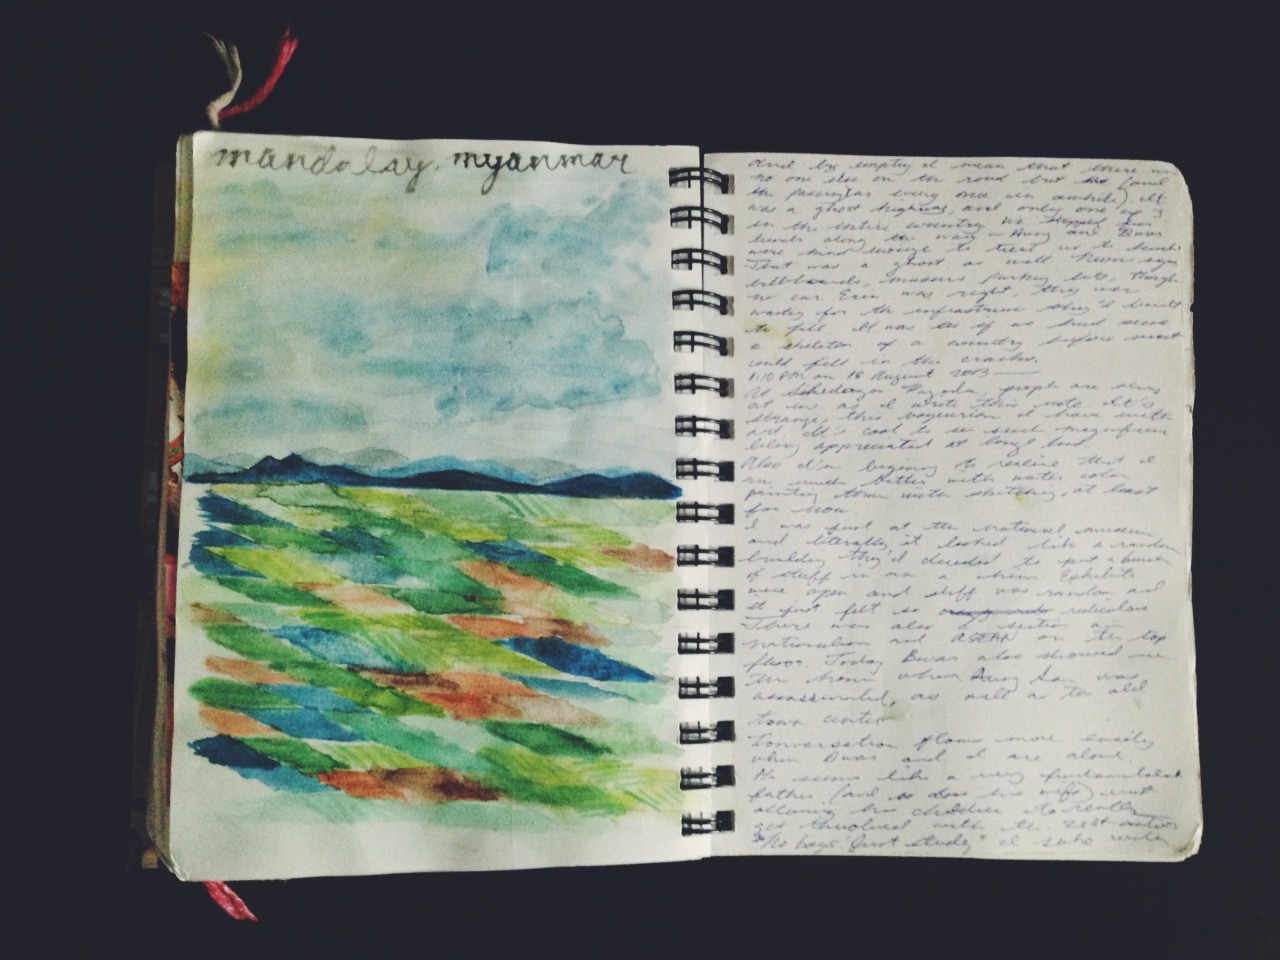 mandalay, myanmar
and by empty I mean that there
no one else on the road but (and
the passing every once in awhile). It
was a ghost highway, and only one of 3
in the entire country. we stopped
along the way — Aung and Bwas
were kind enough to treat us to lunch
That was a ghost as well. Neon signs
billboards, massive parking lots, though
no car. Erin was right, they were
waiting for the infrastructure they'd built
to fill. It was as if we had seen
a skeleton of a country before most
could fill in the cracks.
1:10 PM on 18 August 2013
At Pagoda, people are
at me as I wrote this note. It's
strange, this voyeurism I have with
art. It's cool to see such
being appreciated at
Also I'm beginning to realize that I
am much better with water color
painting than with sketching, at least
for now.
I was just at the national museum
and literally, it looked like a random
building they'd decided to put a bunch
of stuff in on a whim. Exhibits
were open and stuff was random and
it just felt so ridiculous
There was also a section on
nationalism and ASEAN on the top
floor. Today Bwas also showed me
the home where Aung San was
assassinated, as well as the old
town center
Conversation flows more easily
when Bwas and I are alone.
He seems like a very
father (and so does his wife)
allowing his children to really
get involved with the
"No boys. Just study"